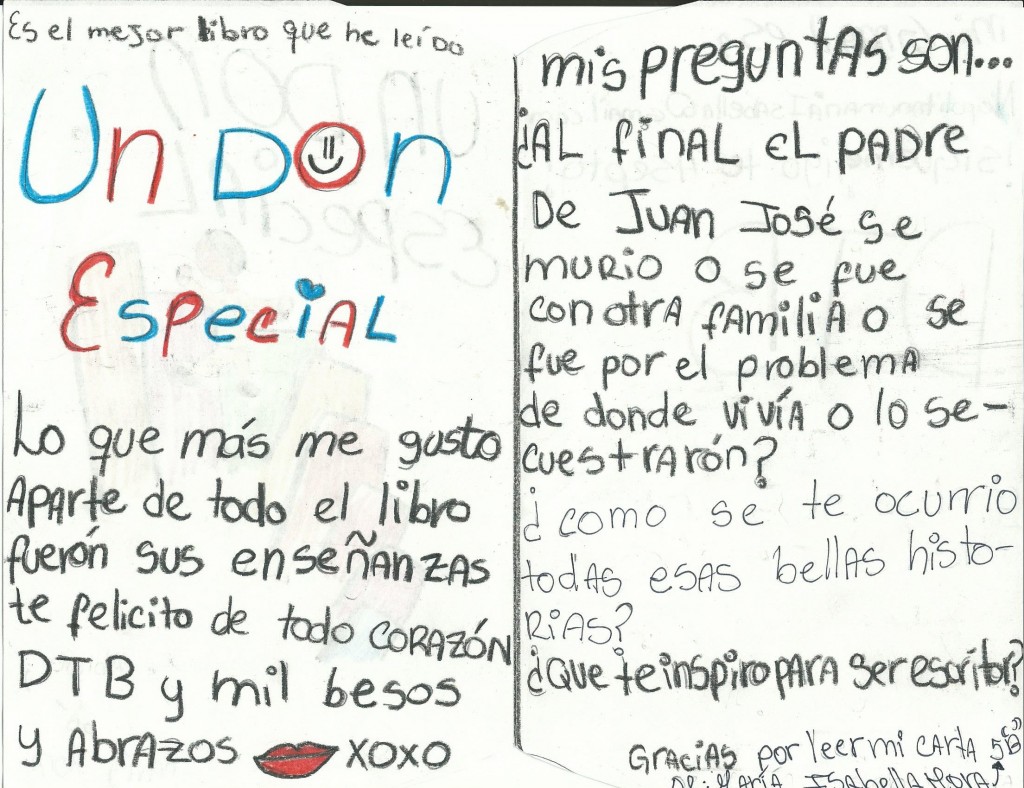 Es el mejor libro que he leído
Un Don
Especial
Lo que más me gusto
Aparte de todo el libro
fuerón sus enseñanzas
te felicito de todo corazón
DTB y mil besos
y Abrazos xoxo
mis preguntas son...
¿Al final el padre
De Juan José se
murio o se fue
con otra familia o se
fue por el problema
de donde vivía o lo se-
cuestrarón?
¿como se te ocurrio
todas esas bellas histo-
rias?
¿Que te inspiro para ser escritor?
Gracias por leer mi carta 5B
De: María Isabella Mora